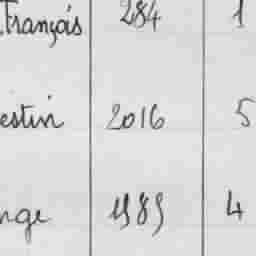 François 284 1
estin 2016 5
nge 1989 4